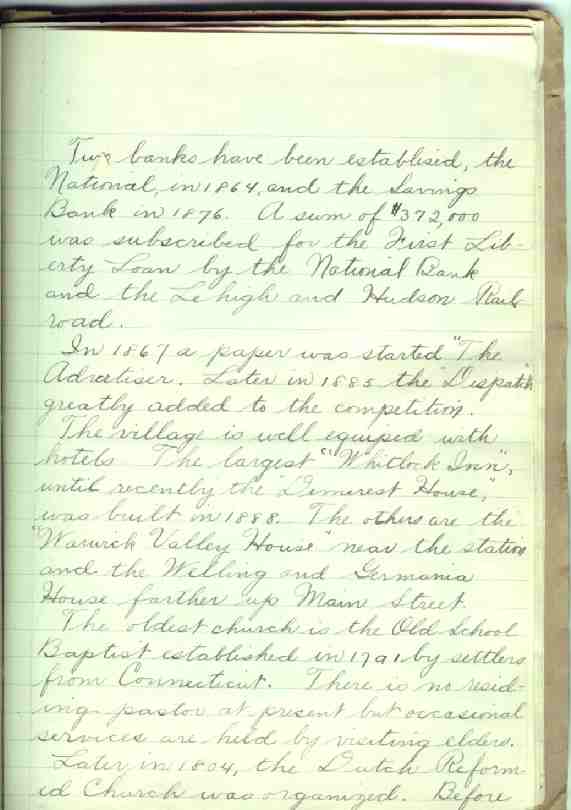 Two banks have been establised, the
National, in 1864, and the Savings
Bank in 1876. A sum of $372,000
was subscribed for the First Lib-
erty Loan by the National Bank
and the Lehigh and Hudson Rail-
road.
In 1867 a paper was started "The
Advertiser. Later in 1885 the "Despatch"
greatly added to the competition.
The village is well equiped with
hotels. The largest "Whitlock Inn",
until recently the "Demerest House,"
was built in 1888. The others are the
"Warwick Valley House" near the station
and the Welling and Germania
House farther up Main Street.
The oldest church is the Old School
Baptist established in 1791 by settlers
from Connecticut. There is no resid-
ing pastor at present but occasional
services are held by visiting elders.
Later in 1804, the Dutch Reform-
ed Church was organized. Before